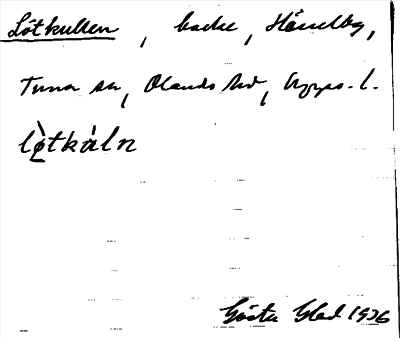 Lötkullen, backe, Hässelby,
Tuna sn, Olands hd, Upps. l.
lø̀tkάln
Gösta Glad 1936